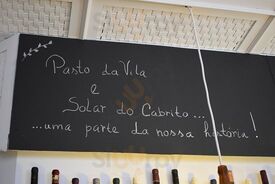 Pasto da Vila
e
Solar do Cabrito...
...uma parte da nossa história!